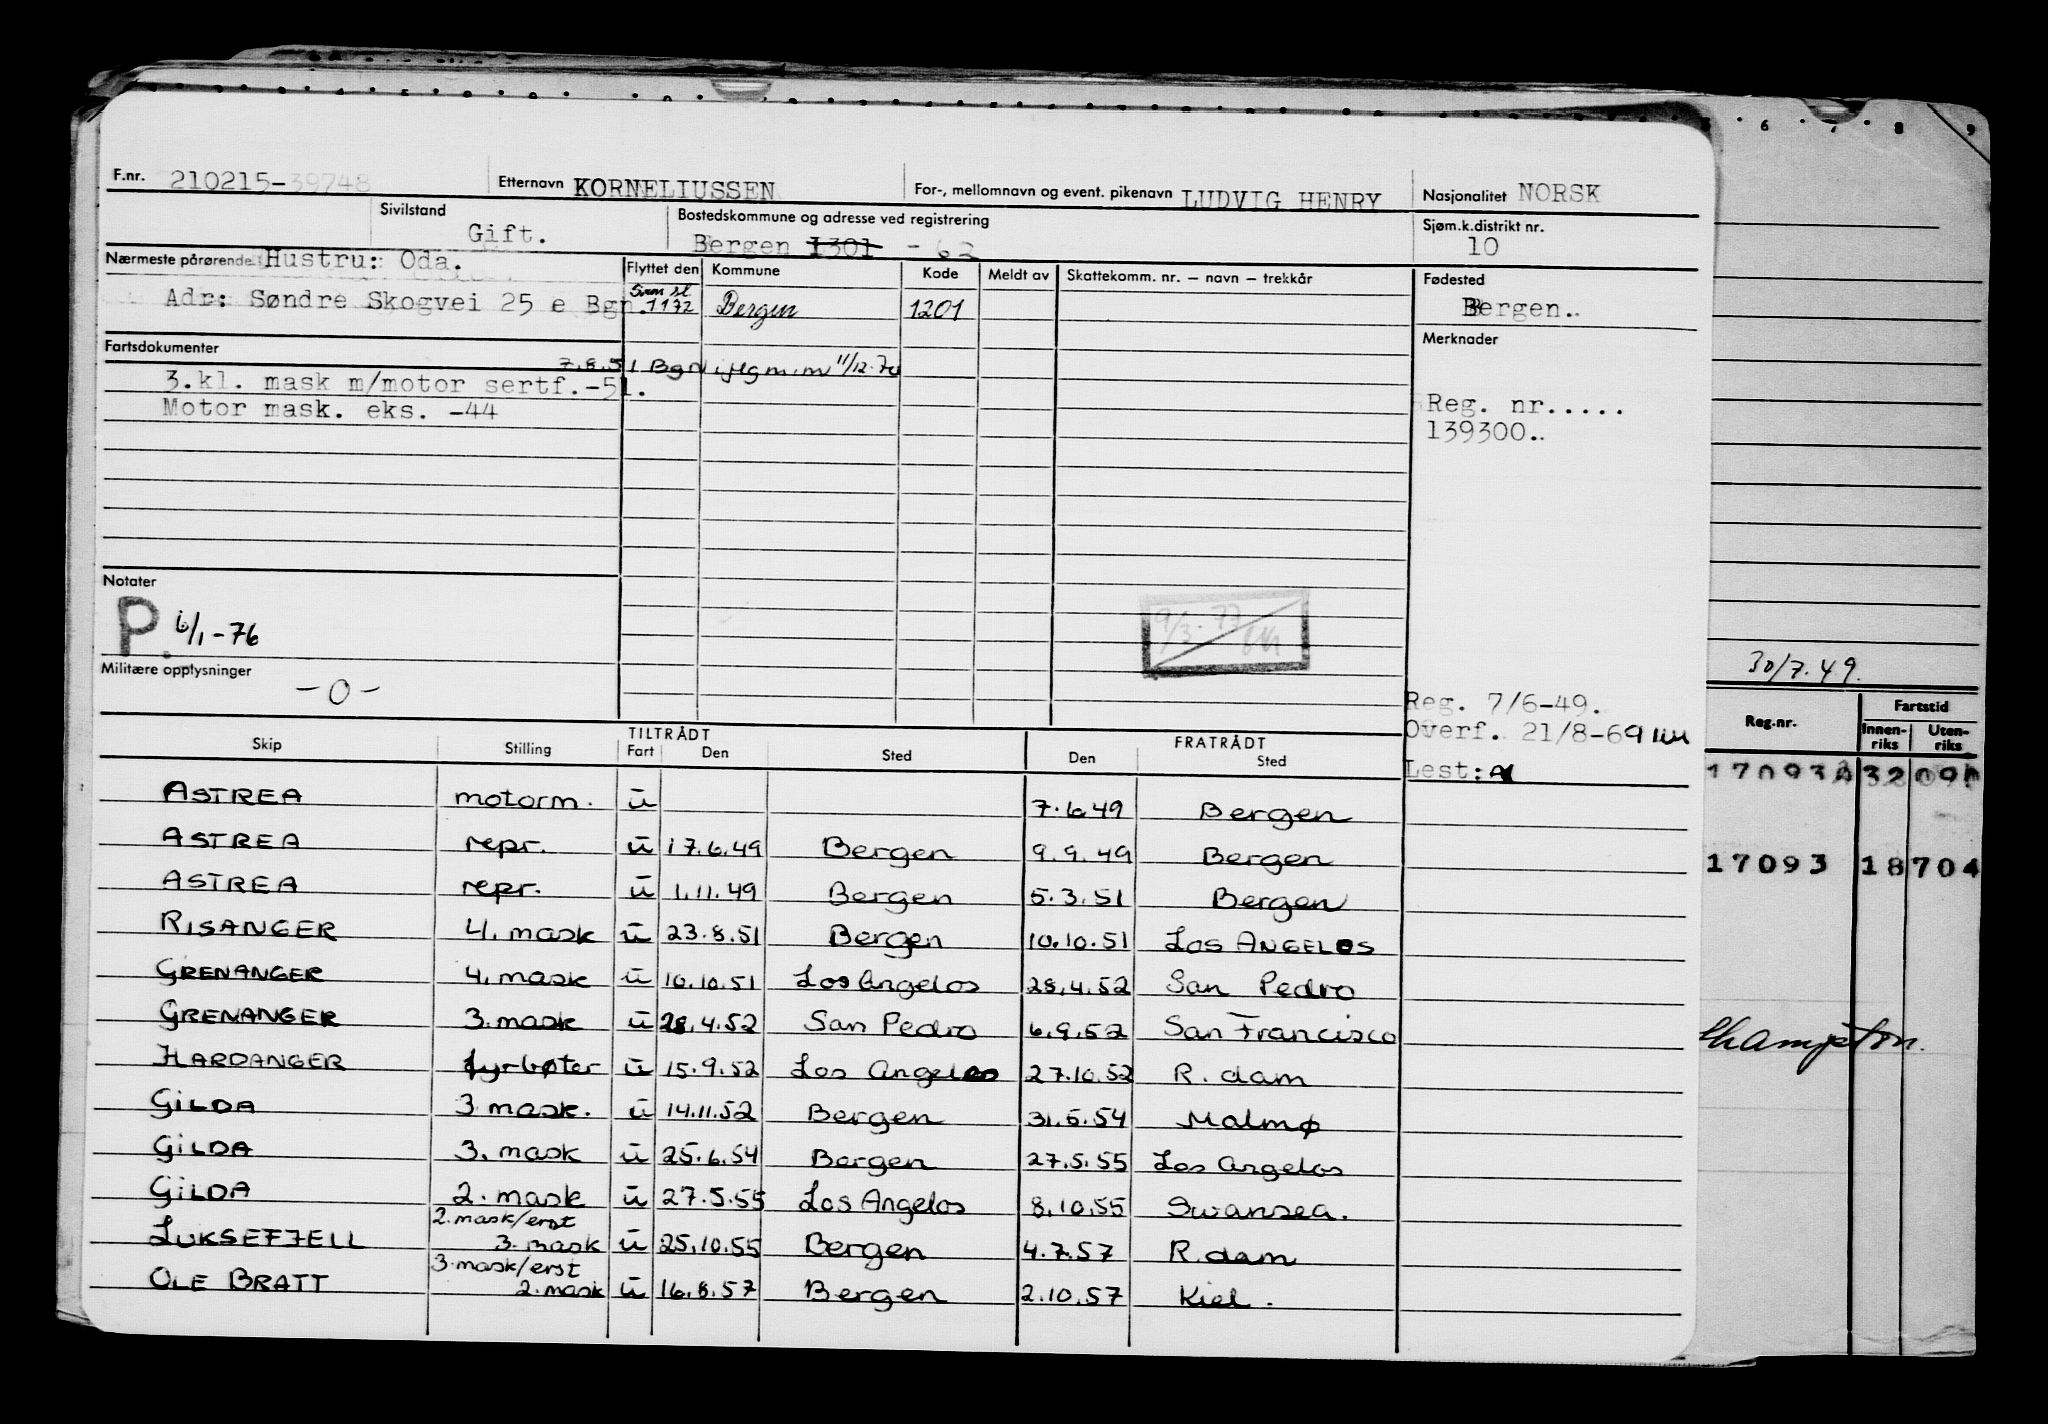 6 7 8 9
F.nr. 210215-39748 Etternavn KORNELIUSSEN For-, mellomnavn og event. pikenavn LUDVIG HENRY Nasjonalitet NORSK
Sivilstand Gift. Bostedskommune og adresse ved registrering Bergen 1301 - 62 Sjøm.k.distrikt nr. 10
Nærmeste pårørende Hustru: Oda. Flyttet den Kommune Kode Meldt av Skattekomm. nr. – navn – trekkår Fødested
Adr: Søndre Skogvei 25 e Bgn. 1172 Bergen 1201 Bergen.
Fartsdokumenter Merknader
7.8.51 Bgn 11/12-70
3.kl. mask m/motor sertf.-51.
Motor mask. eks. -44
Reg. nr.....
139300..
Notater
P. 6/1-76
9/3-77
Militære opplysninger
-0-
30/7.49.
Reg. 7/6-49.
Overf. 21/8-69
Lest:
Reg.nr. Fartstid
Innen-riks Uten-riks
TILTRÅDT FRATRÅDT
Skip Stilling Fart Den Sted Den Sted
ASTREA motorm. u 7.6.49 Bergen
ASTREA repr. u 17.6.49 Bergen 9.9.49 Bergen
ASTREA repr. u 1.11.49 Bergen 5.3.51 Bergen
RISANGER 4. mask u 23.8.51 Bergen 10.10.51 Los ANGELOS
GRENANGER 4. mask u 10.10.51 Los Angelos 28.4.52 San Pedro
GRENANGER 3. mask u 28.4.52 San Pedro 6.9.52 San Francisco
HARDANGER fyrbøter u 15.9.52 Los Angelos 27.10.52 R.dam
GILDA 3 mask. u 14.11.52 Bergen 31.5.54 Malmø
GILDA 3. mask u 25.6.54 Bergen 27.5.55 Los Angelos
GILDA 2. mask u 27.5.55 Los Angelos 8.10.55 Swansea.
2.mask/erst
LUKSEFJELL 3. mask u 25.10.55 Bergen 4.7.57 R.dam
3.mask/erst
OLE BRATT 2. mask u 16.8.57 Bergen 2.10.57 Kiel.
17093 32 09
17093 18 704
thampton.